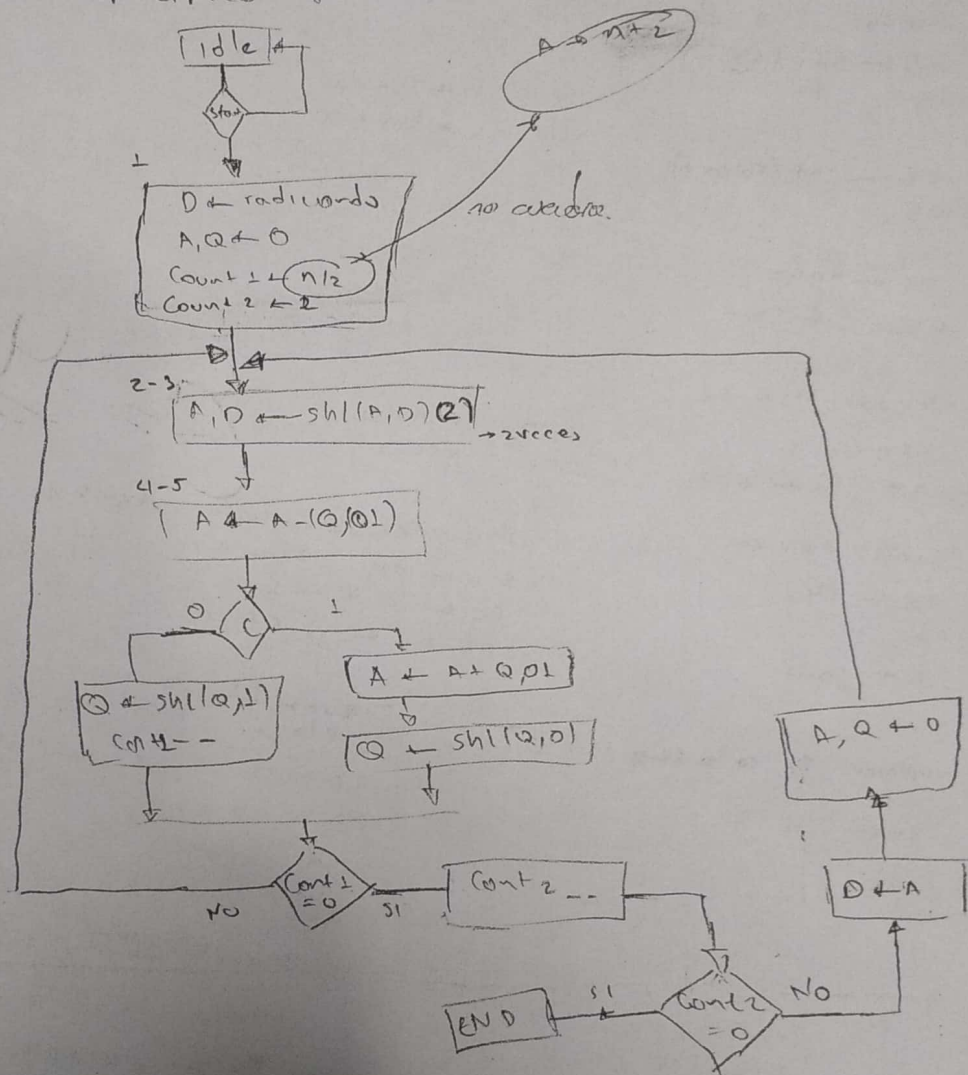 Idle
A → n+2
Start
1
D ← radicando
A, Q ← 0
Count 1 ← n/2
Count 2 ← 2
no cuadra.
2-3
A, D ← shl(A, D)(2)
→ 2 veces
4-5
A ← A - (Q, 01)
0
C
1
Q ← shl(Q,1)
Cont1 --
A ← A + Q,01
Q ← shl(Q,0)
A, Q ← 0
Cont 1
= 0
NO
SI
Cont 2 --
D ← A
END
SI
Cont 2
= 0
NO